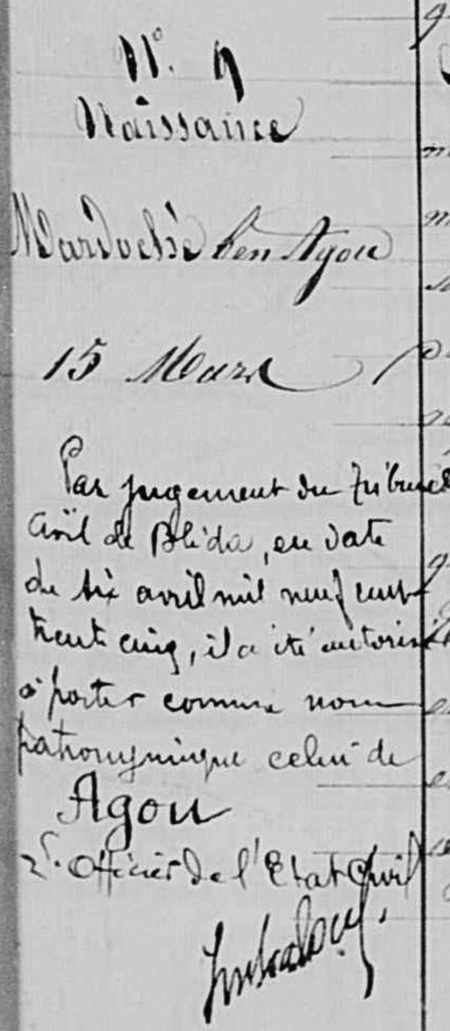 N°. 9
Naissance
Mardochè ben Agou
15 Mars
Par jugement du tribunal
Civil de Blida, en date
du six avril mil neuf cent
trente cinq, il a été autorisé
à porter comme nom
patronymique celui de
Agou
L'Officier de l'Etat Civil